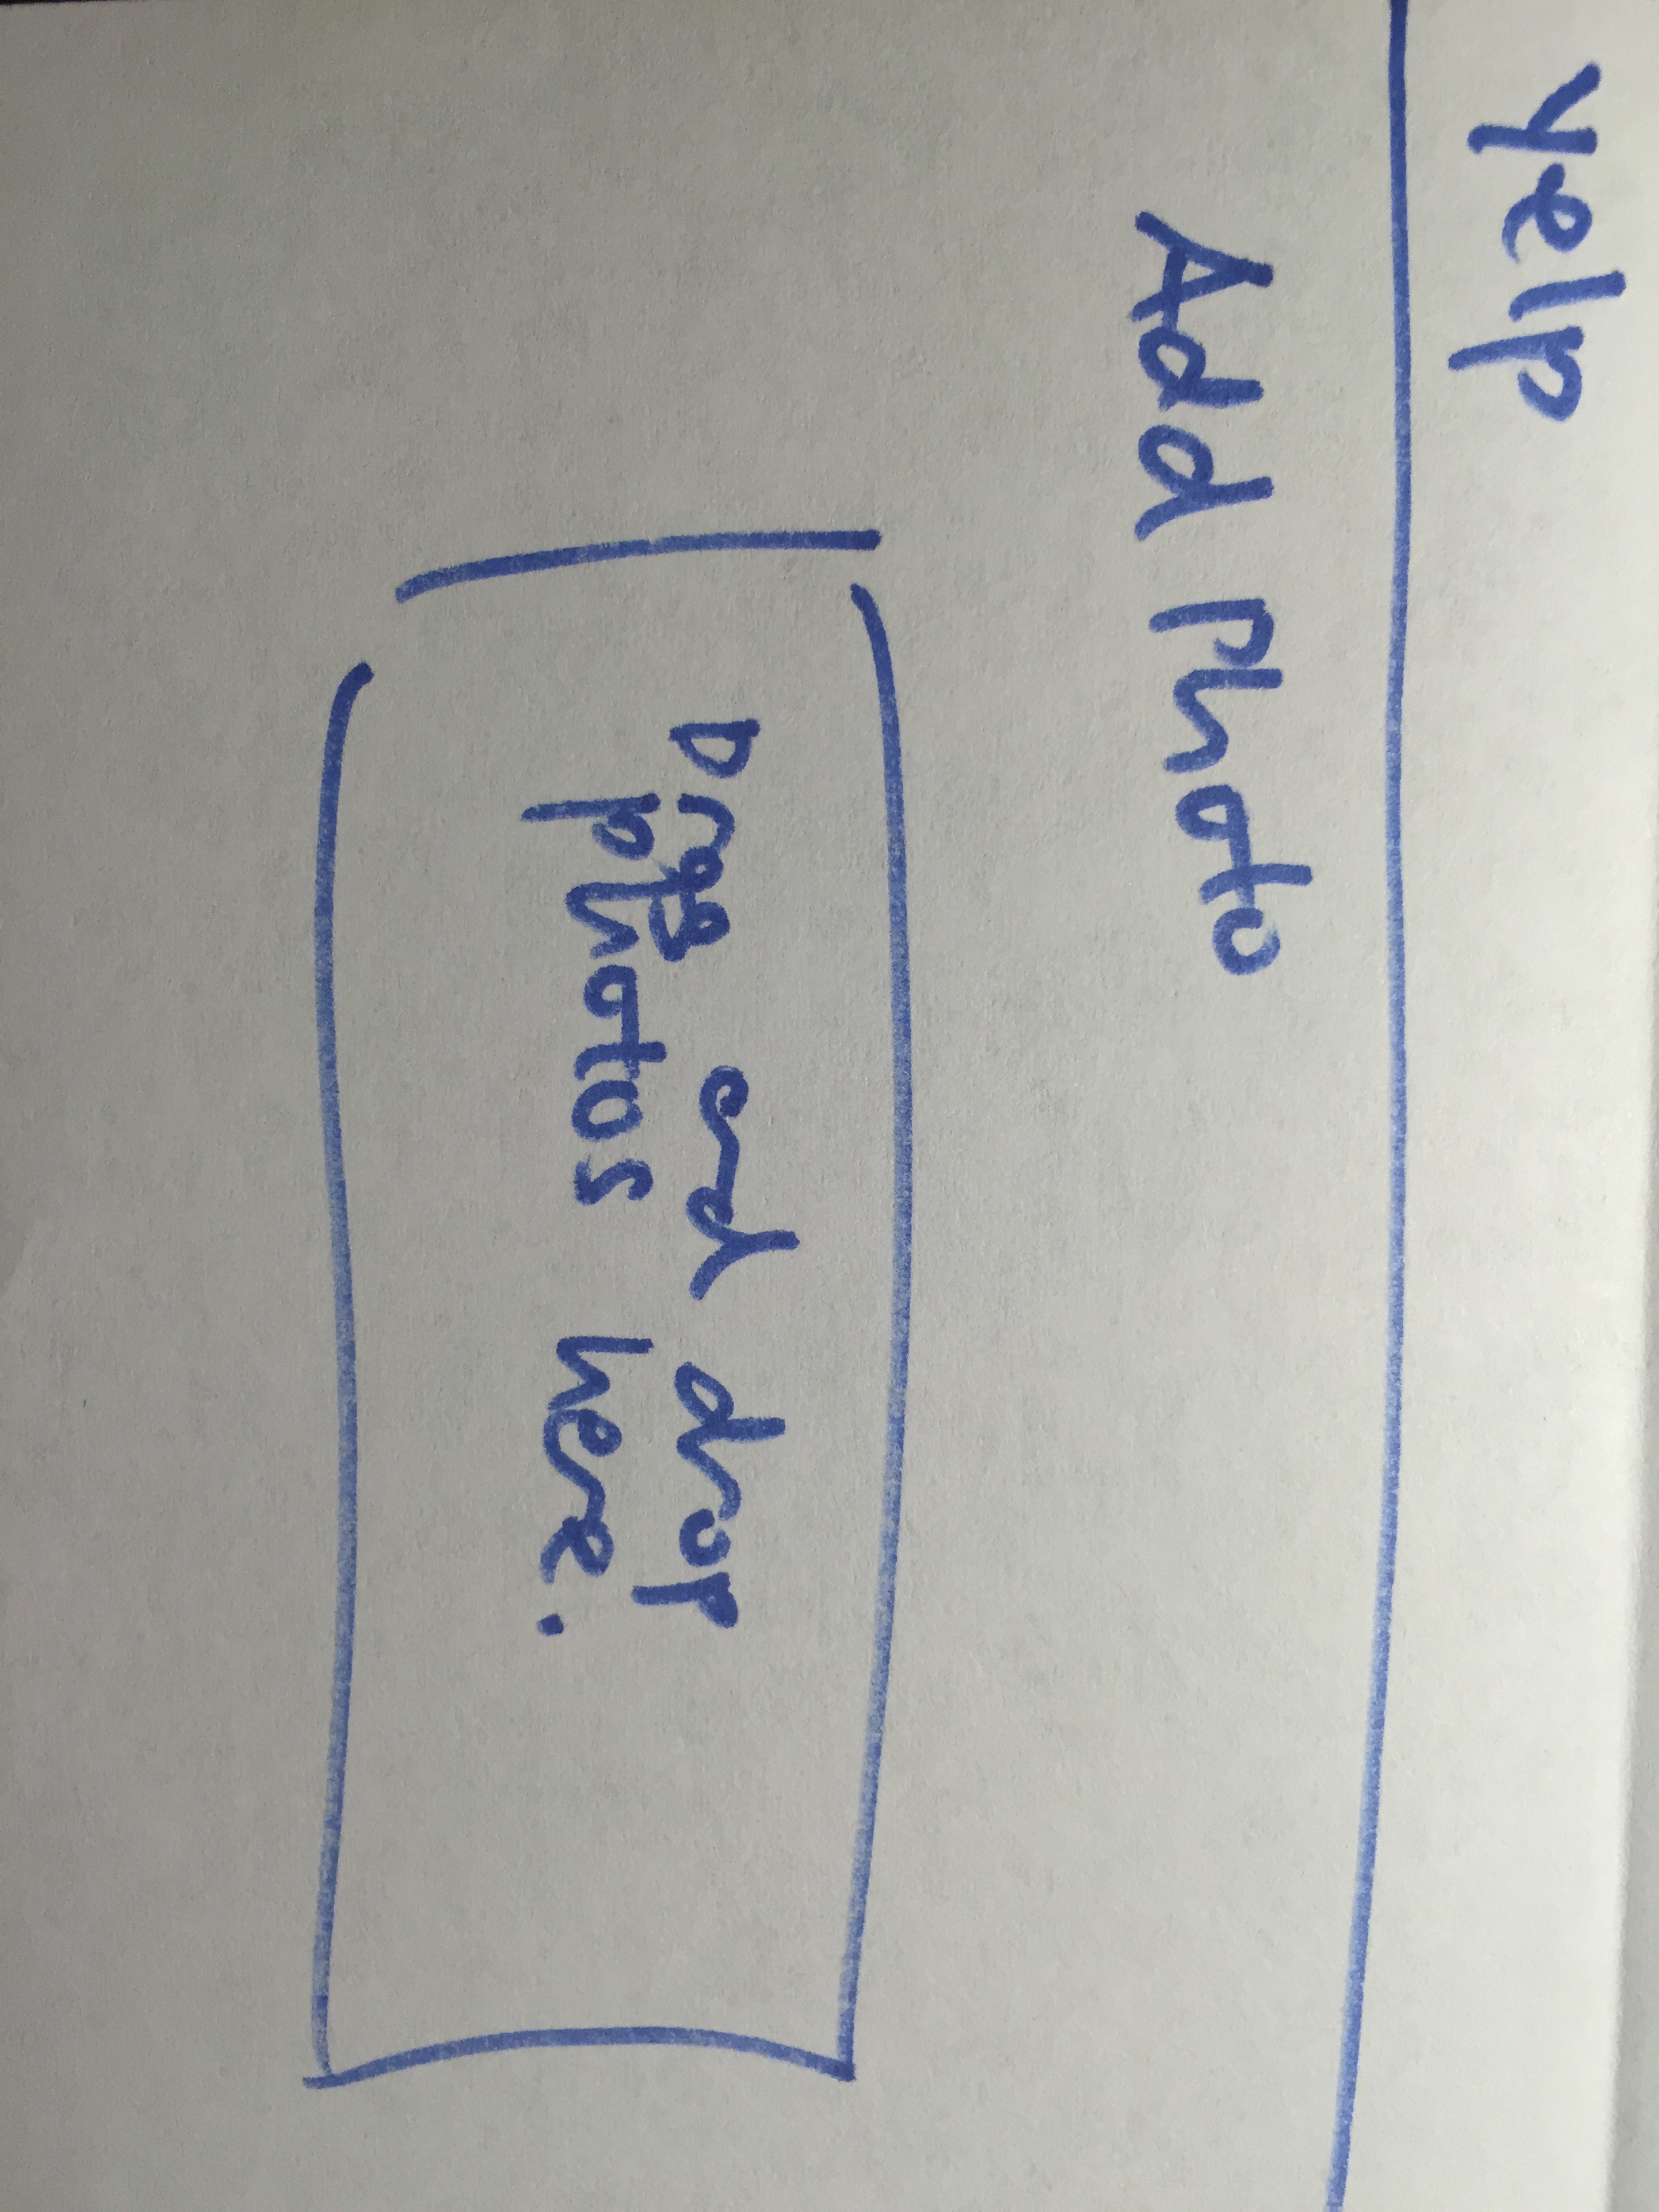 Yelp
Add Photo
Drag and drop
photos here.